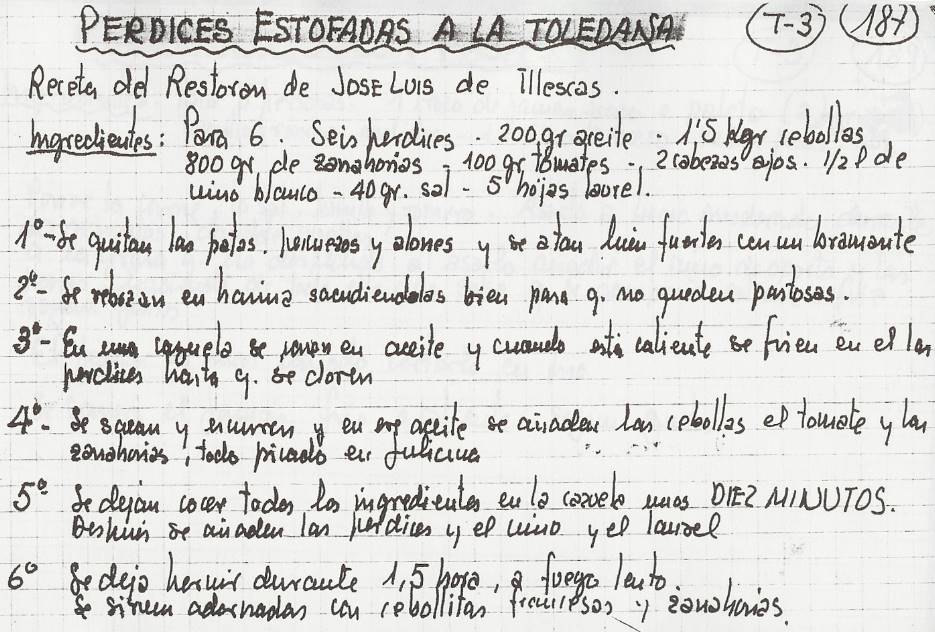 PERDICES ESTOFADAS A LA TOLEDANA (T-3) (187)
Receta del Restoran de JOSE LUIS de Illescas.
Ingredientes: Para 6. Seis perdices - 200 gr aceite - 1'5 Kgr cebollas
800 gr de zanahorias - 100 gr Tomates - 2 cabezas ajos. 1/2 l de
vino blanco - 40 gr. sal - 5 hojas laurel.
1º- Se quitan las patas, y alones y se atan bien fuertes con un bramante
2º- Se rebozan en harina sacudiendolas bien para q. no queden pastosas.
3º- En una cazuela se ponen en aceite y cuando está caliente se frien en el las
perdices hasta q. se doren
4º- Se sacan y escurren y en ese aceite se añaden las cebollas el tomate y las
zanahorias, todo picado en Juliana
5º Se dejan cocer todos los ingredientes en la cazuela unos DIEZ MINUTOS.
Después se añaden las perdices y el vino y el laurel
6º Se deja hervir durante 1,5 hora, a fuego lento.
Se sirven adornadas con cebollitas francesas y zanahorias.